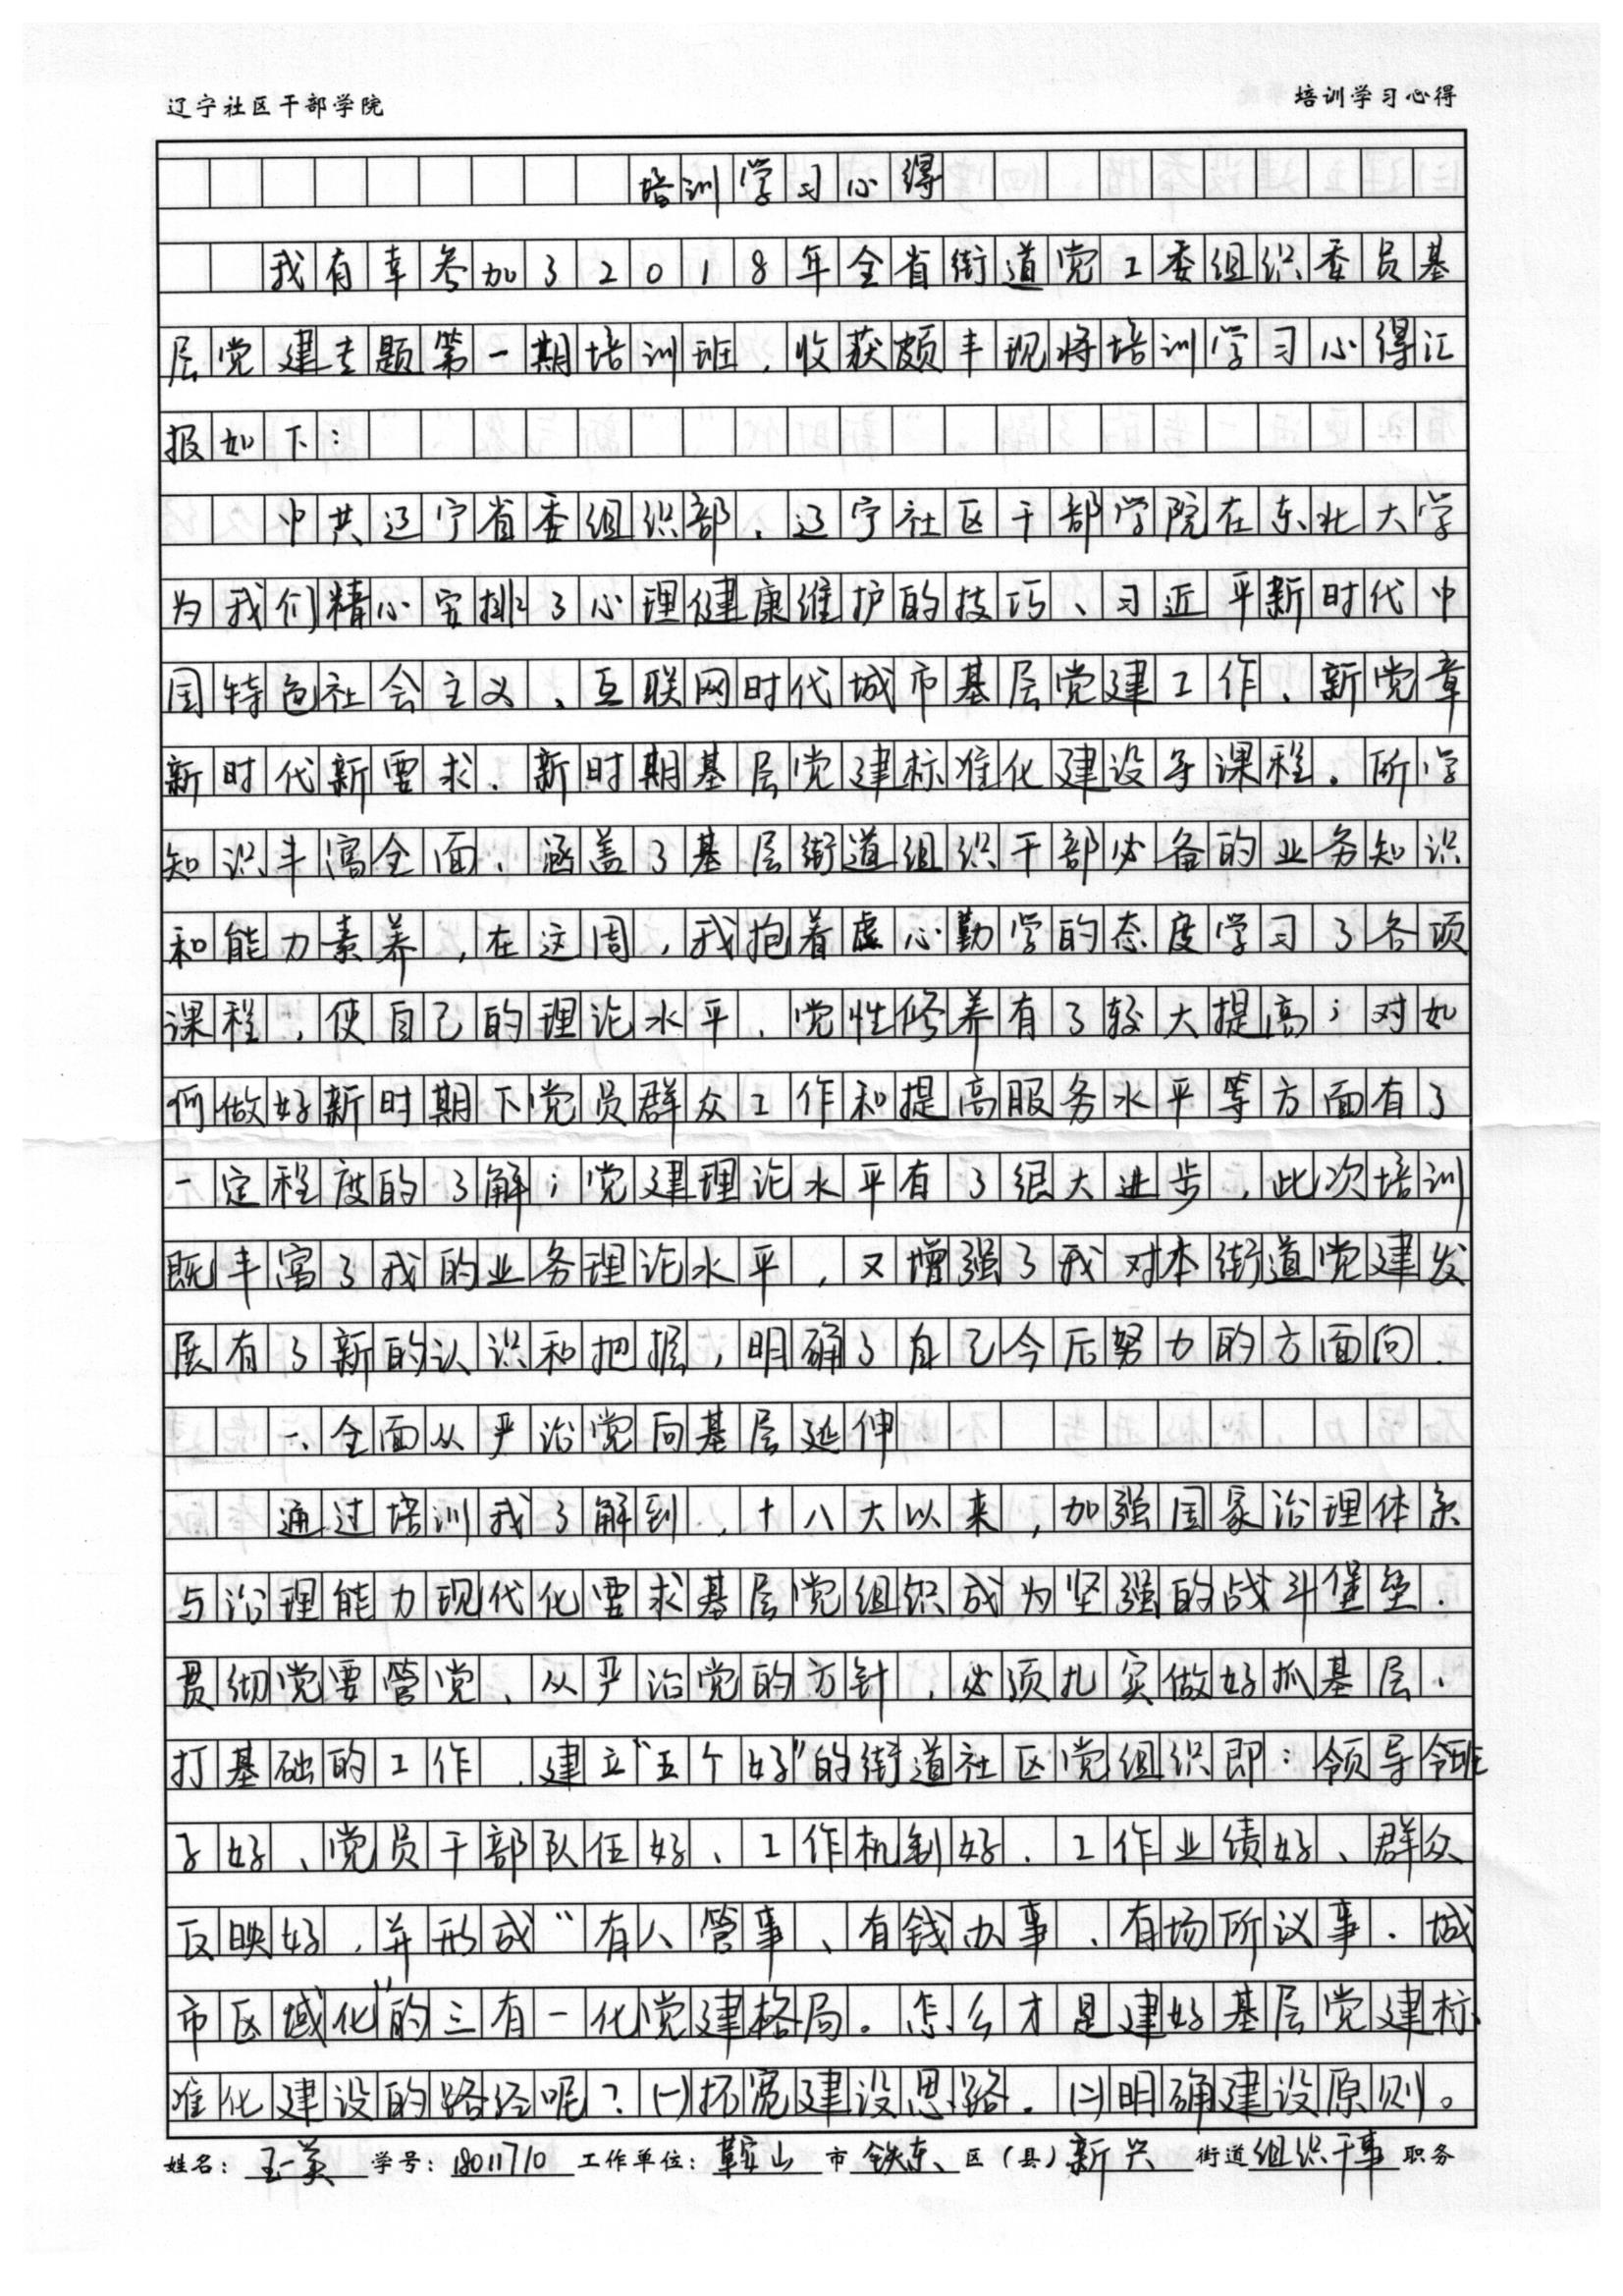 辽宁社区干部学院 培训学习心得
培训学习心得
我有幸参加了2018年全省街道党工委组织委员基
层党建专题第一期培训班，收获颇丰现将培训学习心得汇
报如下：
中共辽宁省委组织部、辽宁社区干部学院在东北大学
为我们精心安排了心理健康维护的技巧、习近平新时代中
国特色社会主义、互联网时代城市基层党建工作、新党章
新时代新要求、新时期基层党建标准化建设等课程。所学
知识丰富全面、涵盖了基层街道组织干部必备的业务知识
和能力素养，在这周，我抱着虚心勤学的态度学习了各项
课程，使自己的理论水平、党性修养有了较大提高；对如
何做好新时期下党员群众工作和提高服务水平等方面有了
一定程度的了解；党建理论水平有了很大进步，此次培训
既丰富了我的业务理论水平，又增强了我对本街道党建发
展有了新的认识和把握，明确了自己今后努力的方面向.
一、全面从严治党向基层延伸
通过培训我了解到，十八大以来，加强国家治理体系
与治理能力现代化要求基层党组织成为坚强的战斗堡垒.
贯彻党要管党、从严治党的方针，必须扎实做好抓基层、
打基础的工作，建立“五个好”的街道社区党组织即：领导班
子好、党员干部队伍好、工作机制好、工作业绩好、群众
反映好，并形成“有人管事、有钱办事、有场所议事.城
市区域化”的三有一化党建格局。怎么才是建好基层党建标
准化建设的路径呢？(一)拓宽建设思路。(二)明确建设原则。
姓名：王英 学号：18011710 工作单位：鞍山市铁东区（县）新兴街道组织干事职务